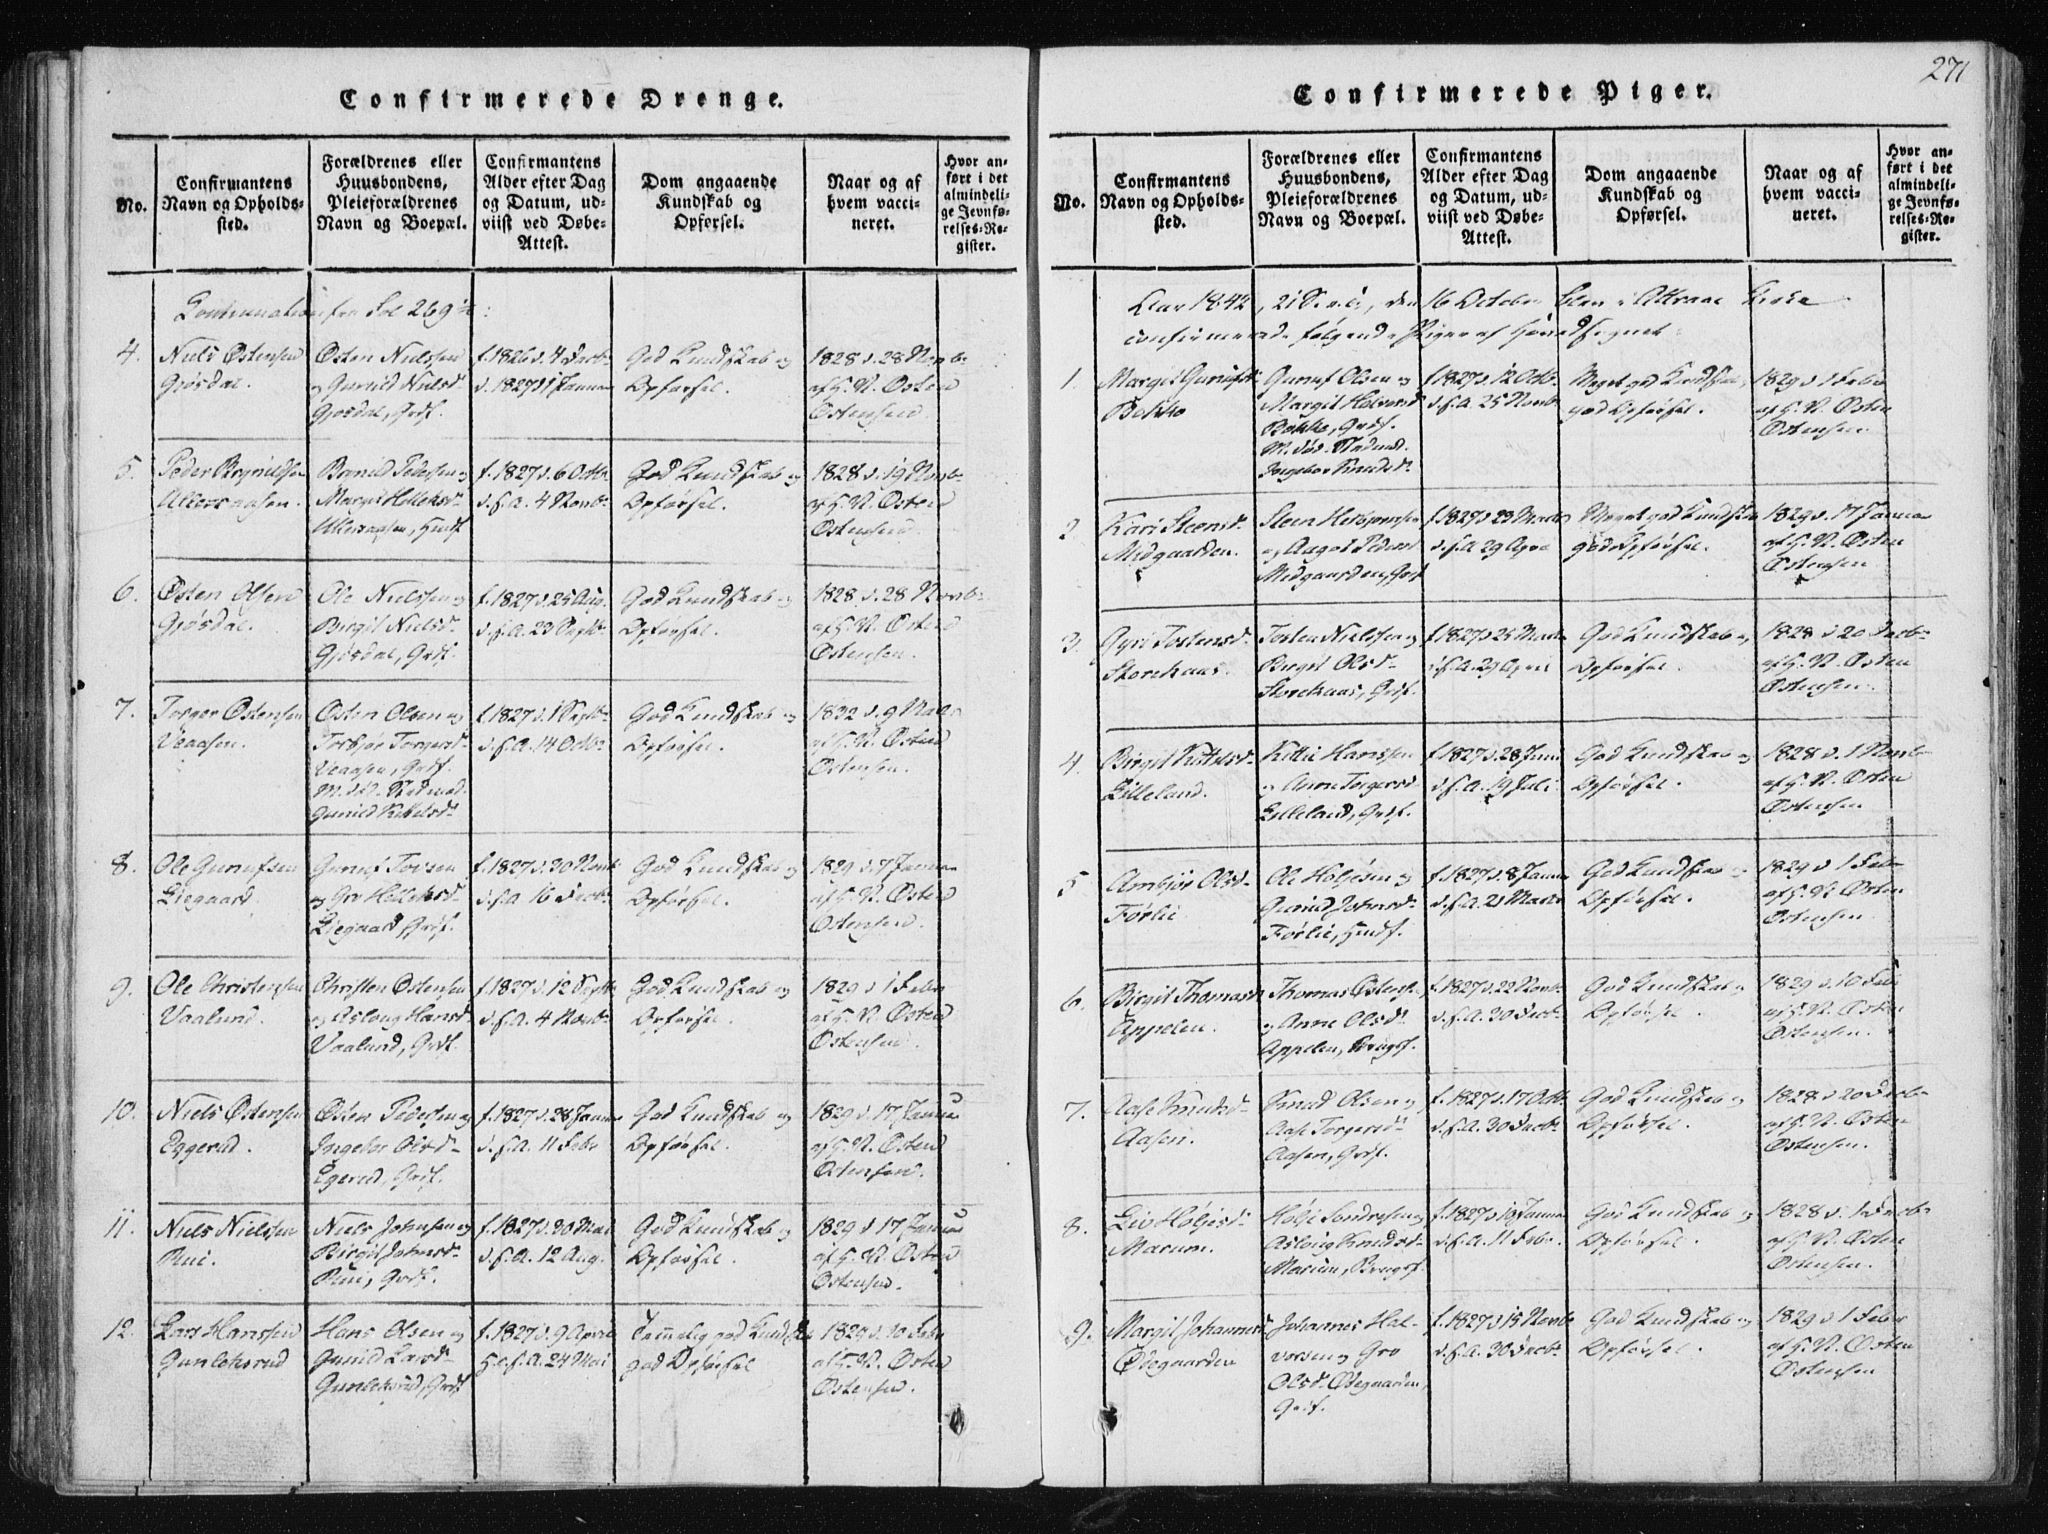 Confirmerede Drenge.
No.
Confirmantens
Navn og Opholds-
sted.
Forældrenes eller
Huusbondens,
Pleieforældrenes
Navn og Boepæl.
Confirmantens
Alder efter Dag
og Datum, ud-
viist ved Døbe-
Attest.
Dom angaaende
Kundskab og
Opførsel.
Naar og af
hvem vacci-
neret.
Hvor an-
ført i det
almindeli-
ge Jevnfø-
relses-Re-
gister.
Continuation fra Fol 269½:
4.
Niels Østensen
Gjøsdal.
Østen Nielssen
og Gunild Nielsd
Gjøsdal, Grdf.
f. 1826 d. 4 Decbr
d. 1827 d 1 Januar
God Kundskab og
Opførsel.
1828 d. 28 Novbr
af H. N. Østen
Østensen.
5.
Peder Brynildsen
Brynild Pedersen og
Margit Helleksdr
f. 1827 d. 6 Octbr
d. s. A. 4 Novbr
God Kundskab og
Opførsel.
1828 d. 19 Novbr
af H. N. Østen
Østensen.
6.
Østen Olsen
Gjøsdal.
Ole Nielssen og
Birgit Nielsdr
Gjøsdal, Grdf.
f. 1827 d. 25 Aug.
d. s. A. 23 Septbr
God Kundskab og
Opførsel.
1828 d. 28 Novbr
af H. N. Østen
Østensen.
7.
Torger Østensen
Vaasen.
Østen Olsen og
Torbjør Torgersdr
Vaasen, Grdf.
M. død. Stedmod.
Gunild Kittelsdr
f. 1827 d. 1 Septbr
d. s. A. 14 Octbr
God Kundskab og
Opførsel.
1832 d. 9 Mai
af H. N. Østen
Østensen.
8.
Ole Gunufsen
Liegaard.
Gunuf Tovsen
og Gro Helleksdr
Liegaard, Grdf.
f. 1827 d. 20 Novbr
d. s. A. 16 Decbr
God Kundskab og
Opførsel.
1829 d. 7 Januar
af H. N. Østen
Østensen.
9.
Ole Christensen
Vaalund.
Christen Østensen
og Asloug Hansdr
Vaalund, Grdf.
f. 1827 d. 12 Septbr
d. s. A. 4 Novbr
God Kundskab og
Opførsel.
1829 d 1 Febr
af H. N. Østen
Østensen.
10.
Niels Østensen
Eggerud.
Østen Pedersen og
Ingebor Olsdr
Egerud, Grdf.
f. 1827 d. 28 Januar
d. s. A. 11 Febr
God Kundskab og
Opførsel.
1829 d. 17 Januar
af H. N. Østen
Østensen.
11.
Niels Nielsen
Rui.
Niels Johnsen og
Birgit Johnsdr
Rui, Grdf.
f. 1827 d. 20 Mai
d. s. A. 12 Aug.
God Kundskab og
Opførsel.
1829 d 17 Januar
af H. N. Østen
Østensen.
12.
Lars Hanssen
Gunleksrud
Hans Olsen og
Gunild Larsdr
Gunleksrud, Grdf
f. 1827 d. 9 April
s. A. 24 Mai
Temmelig god Kundskab
god Opførsel
1829 d. 10 Febr
af H. N. Østen
Østensen.
271
Confirmerede Piger.
No.
Confirmantens
Navn og Opholds-
sted.
Forældrenes eller
Huusbondens,
Pleieforældrenes
Navn og Boepæl.
Confirmantens
Alder efter Dag
og Datum, ud-
viist ved Døbe-
Attest.
Dom angaaende
Kundskab og
Opførsel.
Naar og af
hvem vacci-
neret.
Hvor an-
ført i det
almindeli-
ge Jevnfø-
relses-Re-
gister.
Aar 1842, 21 S. e. T., den 16 October blev i Attraae Kirke
confirmerede følgende Piger af Hovedsognet:
1.
Margit Gunufsdr
Bakko
Gunuf Olsen og
Margit Halvorsdr
Bakko, Grdf.
M. død. Stedmd.
Ingebor Knudsdr
f 1827 d. 12 Octbr
d. s. A. 25 Novbr
Meget god Kundskab,
god Opførsel.
1829 d 1 Febr
af H. N. Østen
Østensen.
2.
Kari Steensdr
Midgaarden.
Steen Herbjørnsen
og Aagot Pedersdr
Midgaarden, Grdf
f 1827 d 23 Marts
d. s. A 29 April
Meget god Kundskab
god Opførsel.
1829 d. 17 Januar
af H. N. Østen
Østensen
3.
Gyri Tostensdr
Storekaas.
Tosten Nielssen og
Birgit Olsdr
Storekaas, Grdf.
f 1827 d 25 Marts
d. s. A. 29 April
God Kundskab og
Opførsel.
1828 d 20 Decbr
af H. N. Østen
Østensen.
4.
Birgit Kittilsdr
Lilleland.
Kittil Hanssen
og Anne Torgersdr
Lilleland, Grdf.
f. 1827 d. 28 Juni
d. s. A. 19 Juli
God Kundskab og
Opførsel.
1828 d. 1 Novbr
af H. N. Østen
Østensen
5
Ambjør Olsdr
Førlie
Ole Holjesen og
Gunild Johnsdr
Førlie, Huusf.
f. 1827 d. 8 Januar
d. s. A. 21 Marts
God Kundskab og
Opførsel.
1829 d 1 Febr
af H. N. Østen
Østensen.
6.
Birgit Thomasdr
Appelen.
Thomas Østens.
og Anne Olsdr
Appelen, Brugsf.
f. 1827 d. 22 Novbr
d. s. A. 30 Decbr
God Kundskab og
Opførsel.
1829 d. 10 Febr
af H. N. Østen
Østensen.
7.
Aase Knudsdr
Aasen.
Knud Olsen og
Aase Torgersdr
Aasen, Grdf.
f. 1827 d. 17 Octbr
d. s. A. 30 Decbr
God Kundskab og
Opførsel.
1828 d 20 Decbr
af H. N. Østen
Østensen.
8.
Liv Holjesdr
Marum.
Holje Sondresen og
Asloug Knudsdr
Marum, Brugsf.
f. 1827 d 19 Januar
d. s. A. 11 Febr.
God Kundskab og
Opførsel.
1828 d. 1 Decbr
af H. N. Østen
Østensen.
9.
Margit Johannesdr
Ødegaarden
Johannes Hal-
vorsen og Gro
Olsdr Ødegaarden,
Grdf.
f. 1827 d 15 Novbr
d. s. A. 30 Decbr
God Kundskab og
Opførsel.
1829 d 1 Febr
af H. N. Østen
Østensen